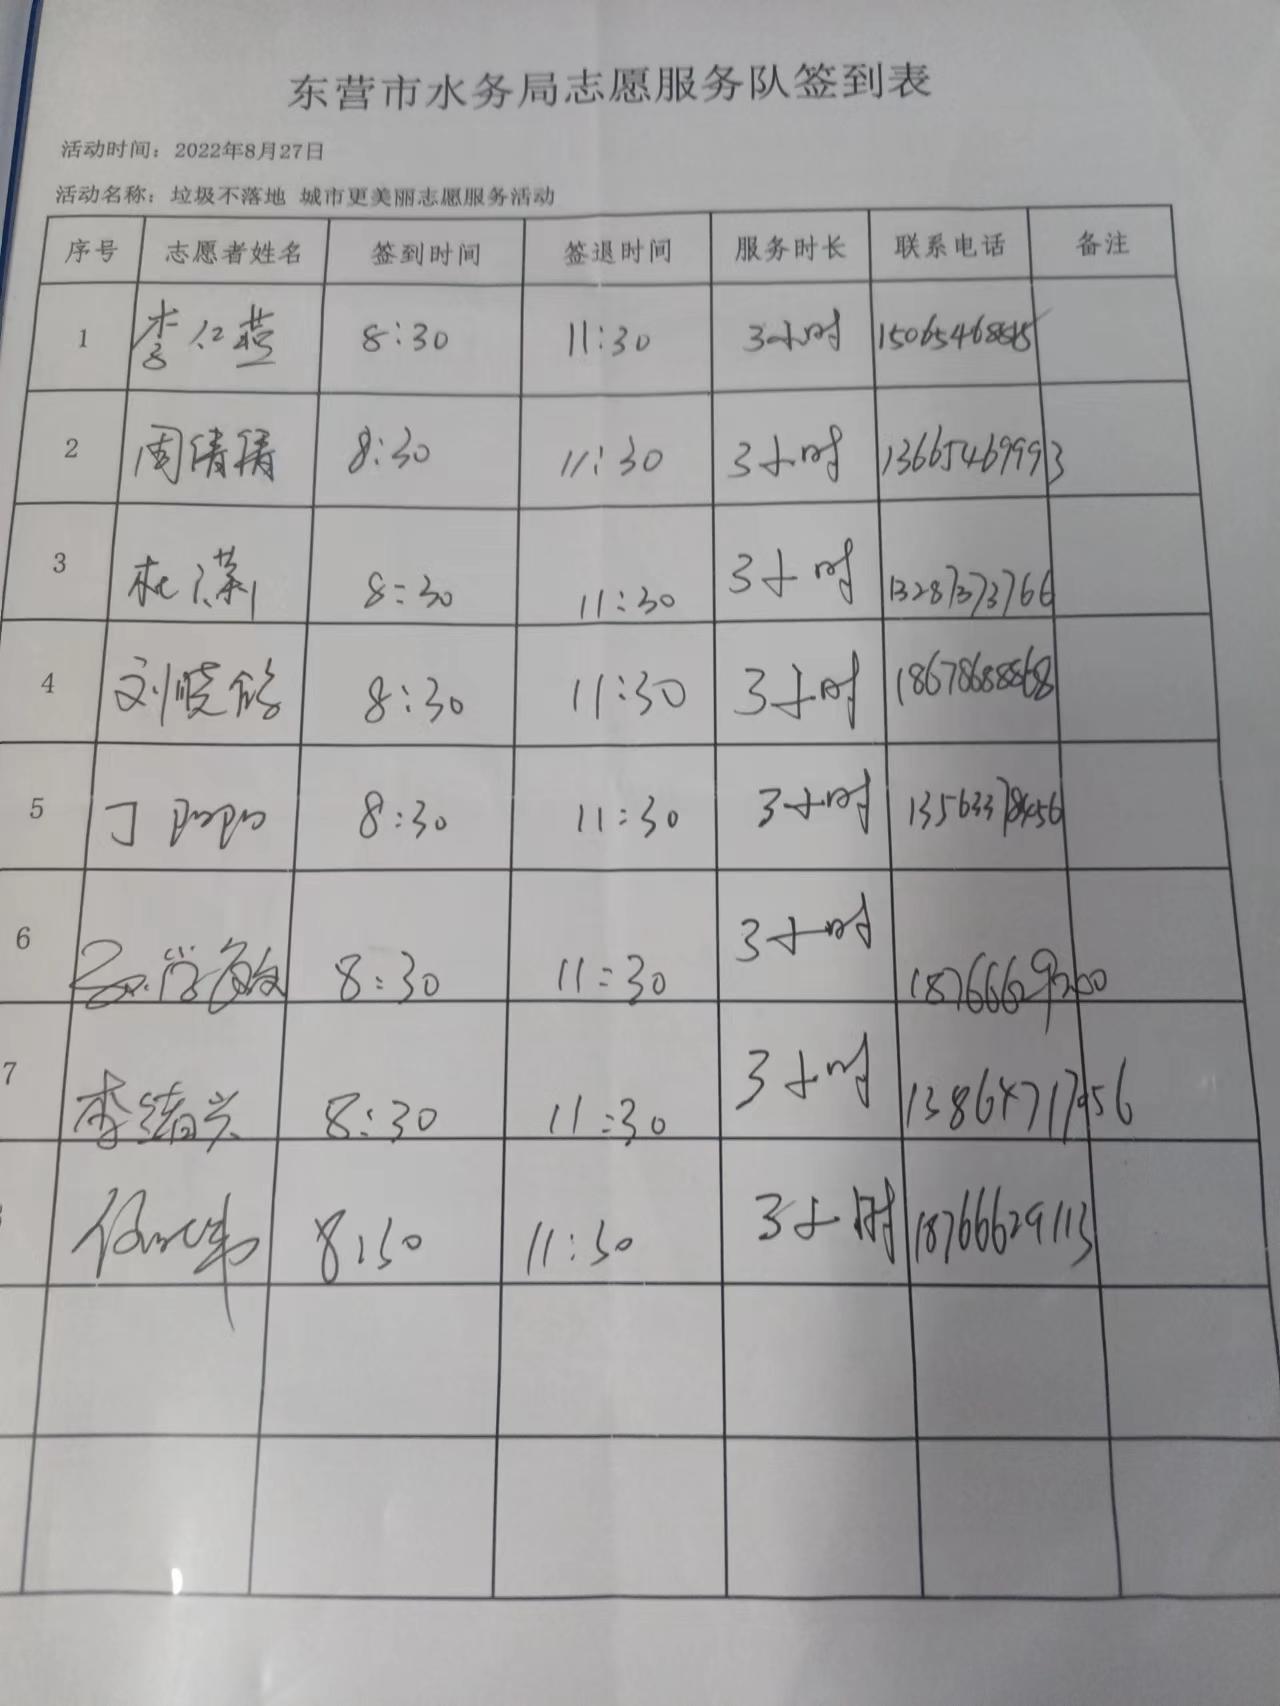 东营市水务局志愿服务队签到表
活动时间：2022年8月27日
活动名称：垃圾不落地 城市更美丽志愿服务活动
序号 志愿者姓名 签到时间 签退时间 服务时长 联系电话 备注
1 李仁燕 8:30 11:30 3小时
2 周倩倩 8:30 11:30 3小时 13665469993
3 杜潇 8:30 11:30 3小时 13287373766
4 刘晓 8:30 11:30 3小时 18678688868
5 丁阳阳 8:30 11:30 3小时 13563378456
6 8:30 11:30 3小时 18766629200
7 李绪兴 8:30 11:30 3小时 13864717956
8:30 11:30 3小时 18766629113